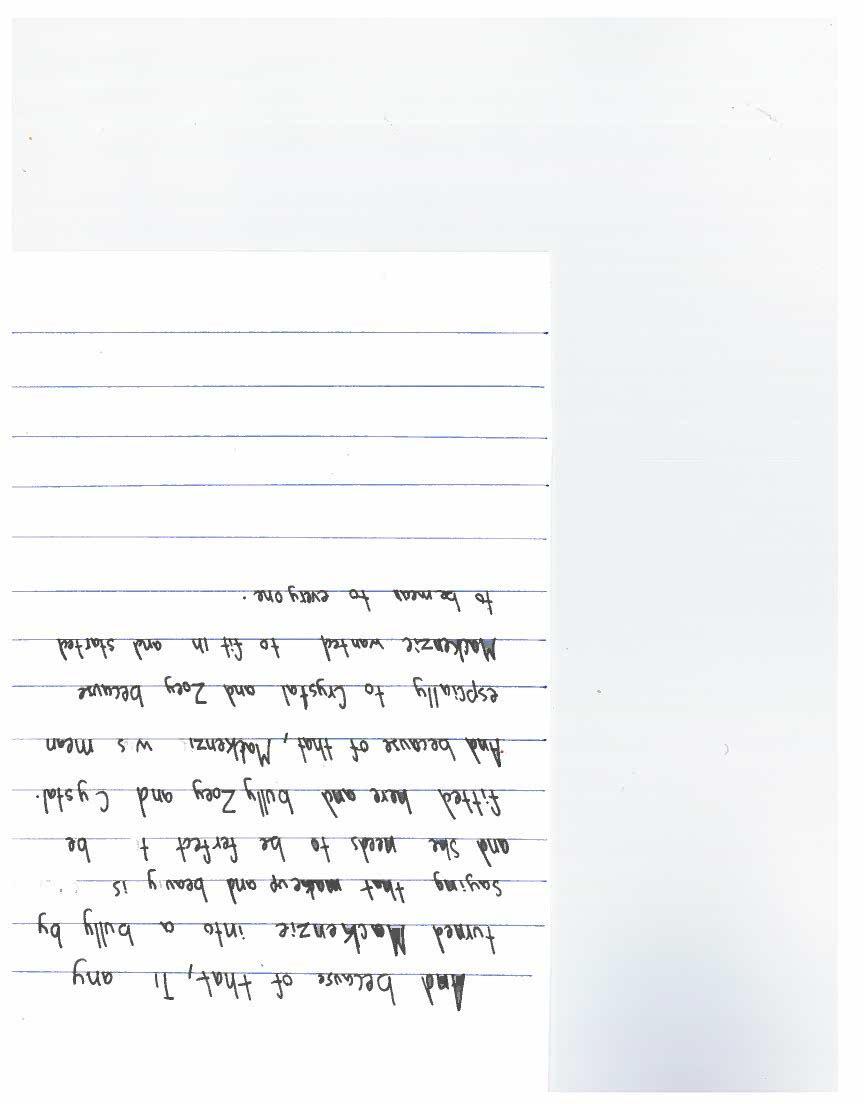 And because of that, any
turned Mackenzie into a bully by
saying that makeup and beauty is
and she needs to be perfect t be
fitted here and bully Zoey and Cystal.
And because of that, Makkenzi w s mean
espcially to Crystal and Zoey because
Mackenzie wanted to fit in and started
to be mean to every one.